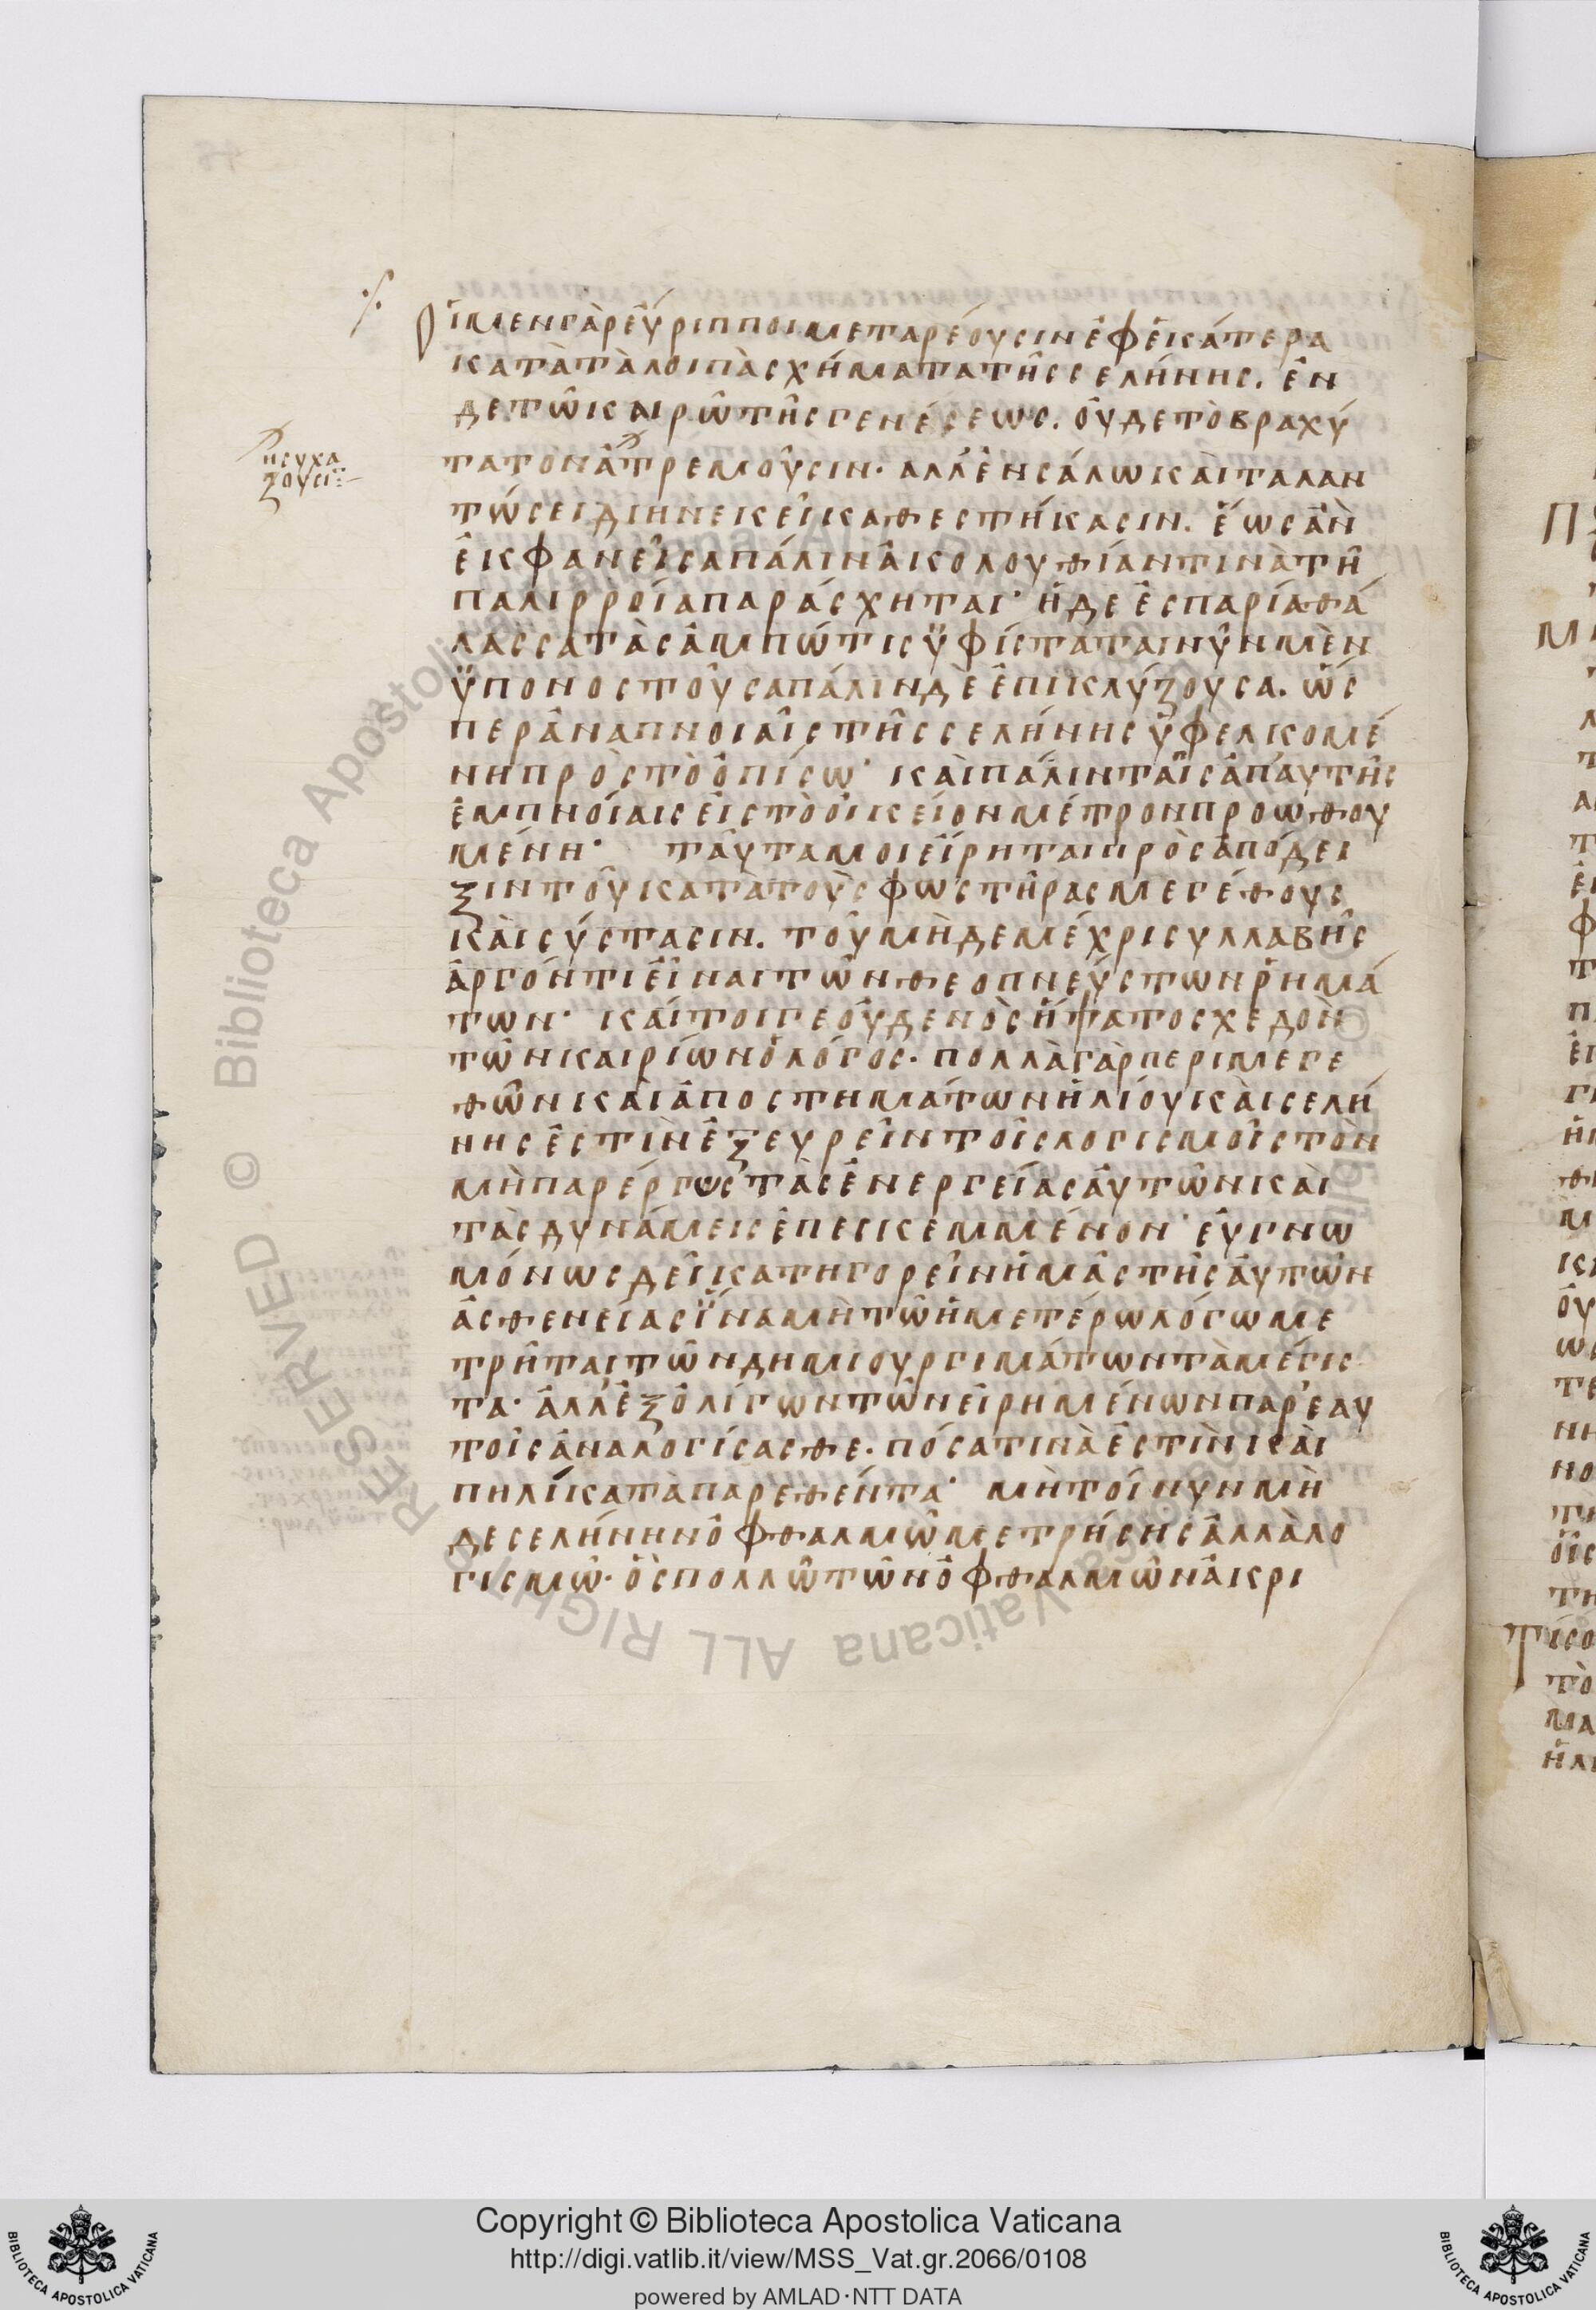 Οἱ μὲν γὰρ εὔριπποι μεταρέουσιν ἐφ ἑκάτερα
κατὰ τὰ λοιπὰ σχήματα τῆς σελήνης. ἐν
δε τῶ καιρῶ τῆς γενέσεως. οὐδε τὸ βραχύ
τατον ἀτρεμοῦσιν· αλλ' ἐν σάλω καὶ ταλαν
τώσει διηνεκεῖ καθεστήκασιν. ἕως ἂν
ἐκφανεῖσα πάλιν ἀκολουθίαν τινὰ τῆ
παλιρροία παράσχηται· ἡ δε ἑσπαρία θά
λασσα τὰς ἀμπώτις ὑφίσταται νῦν μὲν
ὑπονοστοῦσα πάλιν δὲ ἐπικλύζουσα. ὥσ
περ ἀναπνοιαῖς τῆς σελήνης ὑφελκομέ
νη πρὸς τὸ ὀπίσω· καὶ πάλιν ταῖς ἀπ' αυτῆς
ἐμπνοίαις εἰς τὸ οἰκεῖον μέτρον προωθου
μένη· ταῦτα μοι εἴρηται πρὸς ἀπόδει
ξιν τοῦ κατὰ τοὺς φωστῆρας μεγέθους
καὶ σύστασιν. τοῦ μὴδε μέχρι συλλαβῆς
ἀργόν τι εἶναι τῶν θεοπνεύστων ῥημά
των· καίτοιγε οὐδενὸς ἥψατο σχεδὸν
τῶν καιρίων ὁ λόγος· πολλὰ γὰρ περι μεγε
θῶν καὶ ἀποστημάτων ἡλίου καὶ σελή
νης ἐστὶν ἐξευρεῖν τοῖς λογισμοῖς τὸν
μὴ παρέργως τὰς ἐνεργείας αὐτῶν καὶ
τὰς δυνάμεις ἐπεσκεμμένον· εὐγνω
μόνως δεῖ κατηγορεῖν ἡμᾶς τῆς ἀυτῶν
ἀσθενείας ἵνα μὴ τῶ ἡμετέρω λόγω με
τρῆται τῶν δημιουργιμάτων τὰ μέγισ
τα· ἀλλ' ἐξ ὀλίγων τῶν εἰρημένων παρ' εαυ
τοῖς ἀναλογίσασθε. πόσα τινὰ ἐστὶν καὶ
πηλίκα τὰ παρεθέντα· μὴ τοίνυν μὴ
δε σελήνην ὀφθαλμῶ μετρήσης ἀλλὰ λο
γισμῶ· ὃς πολλῶ τῶν ὀφθαλμῶν ἀκρι
ησυχα
ζουσι
Copyright © Biblioteca Apostolica Vaticana
http://digi.vatlib.it/view/MSS_Vat.gr.2066/0108
powered by AMLAD·NTT DATA